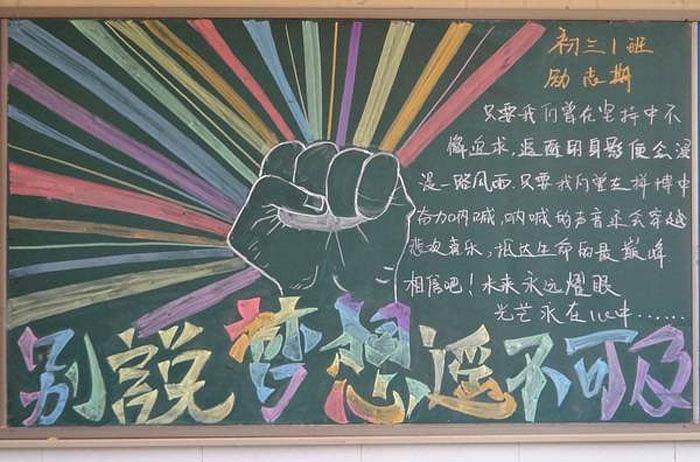 初三1班
励志期
只要我们曾在坚持中不
懈追求,身影便会漫
漫一路风雨.只要我们曾在拼搏中
奋力呐喊,呐喊的声音还会穿越
悲欢喜乐,抵达生命的最巅峰
相信吧!未来永远耀眼
光芒永在心中......
别説梦想遥不可及